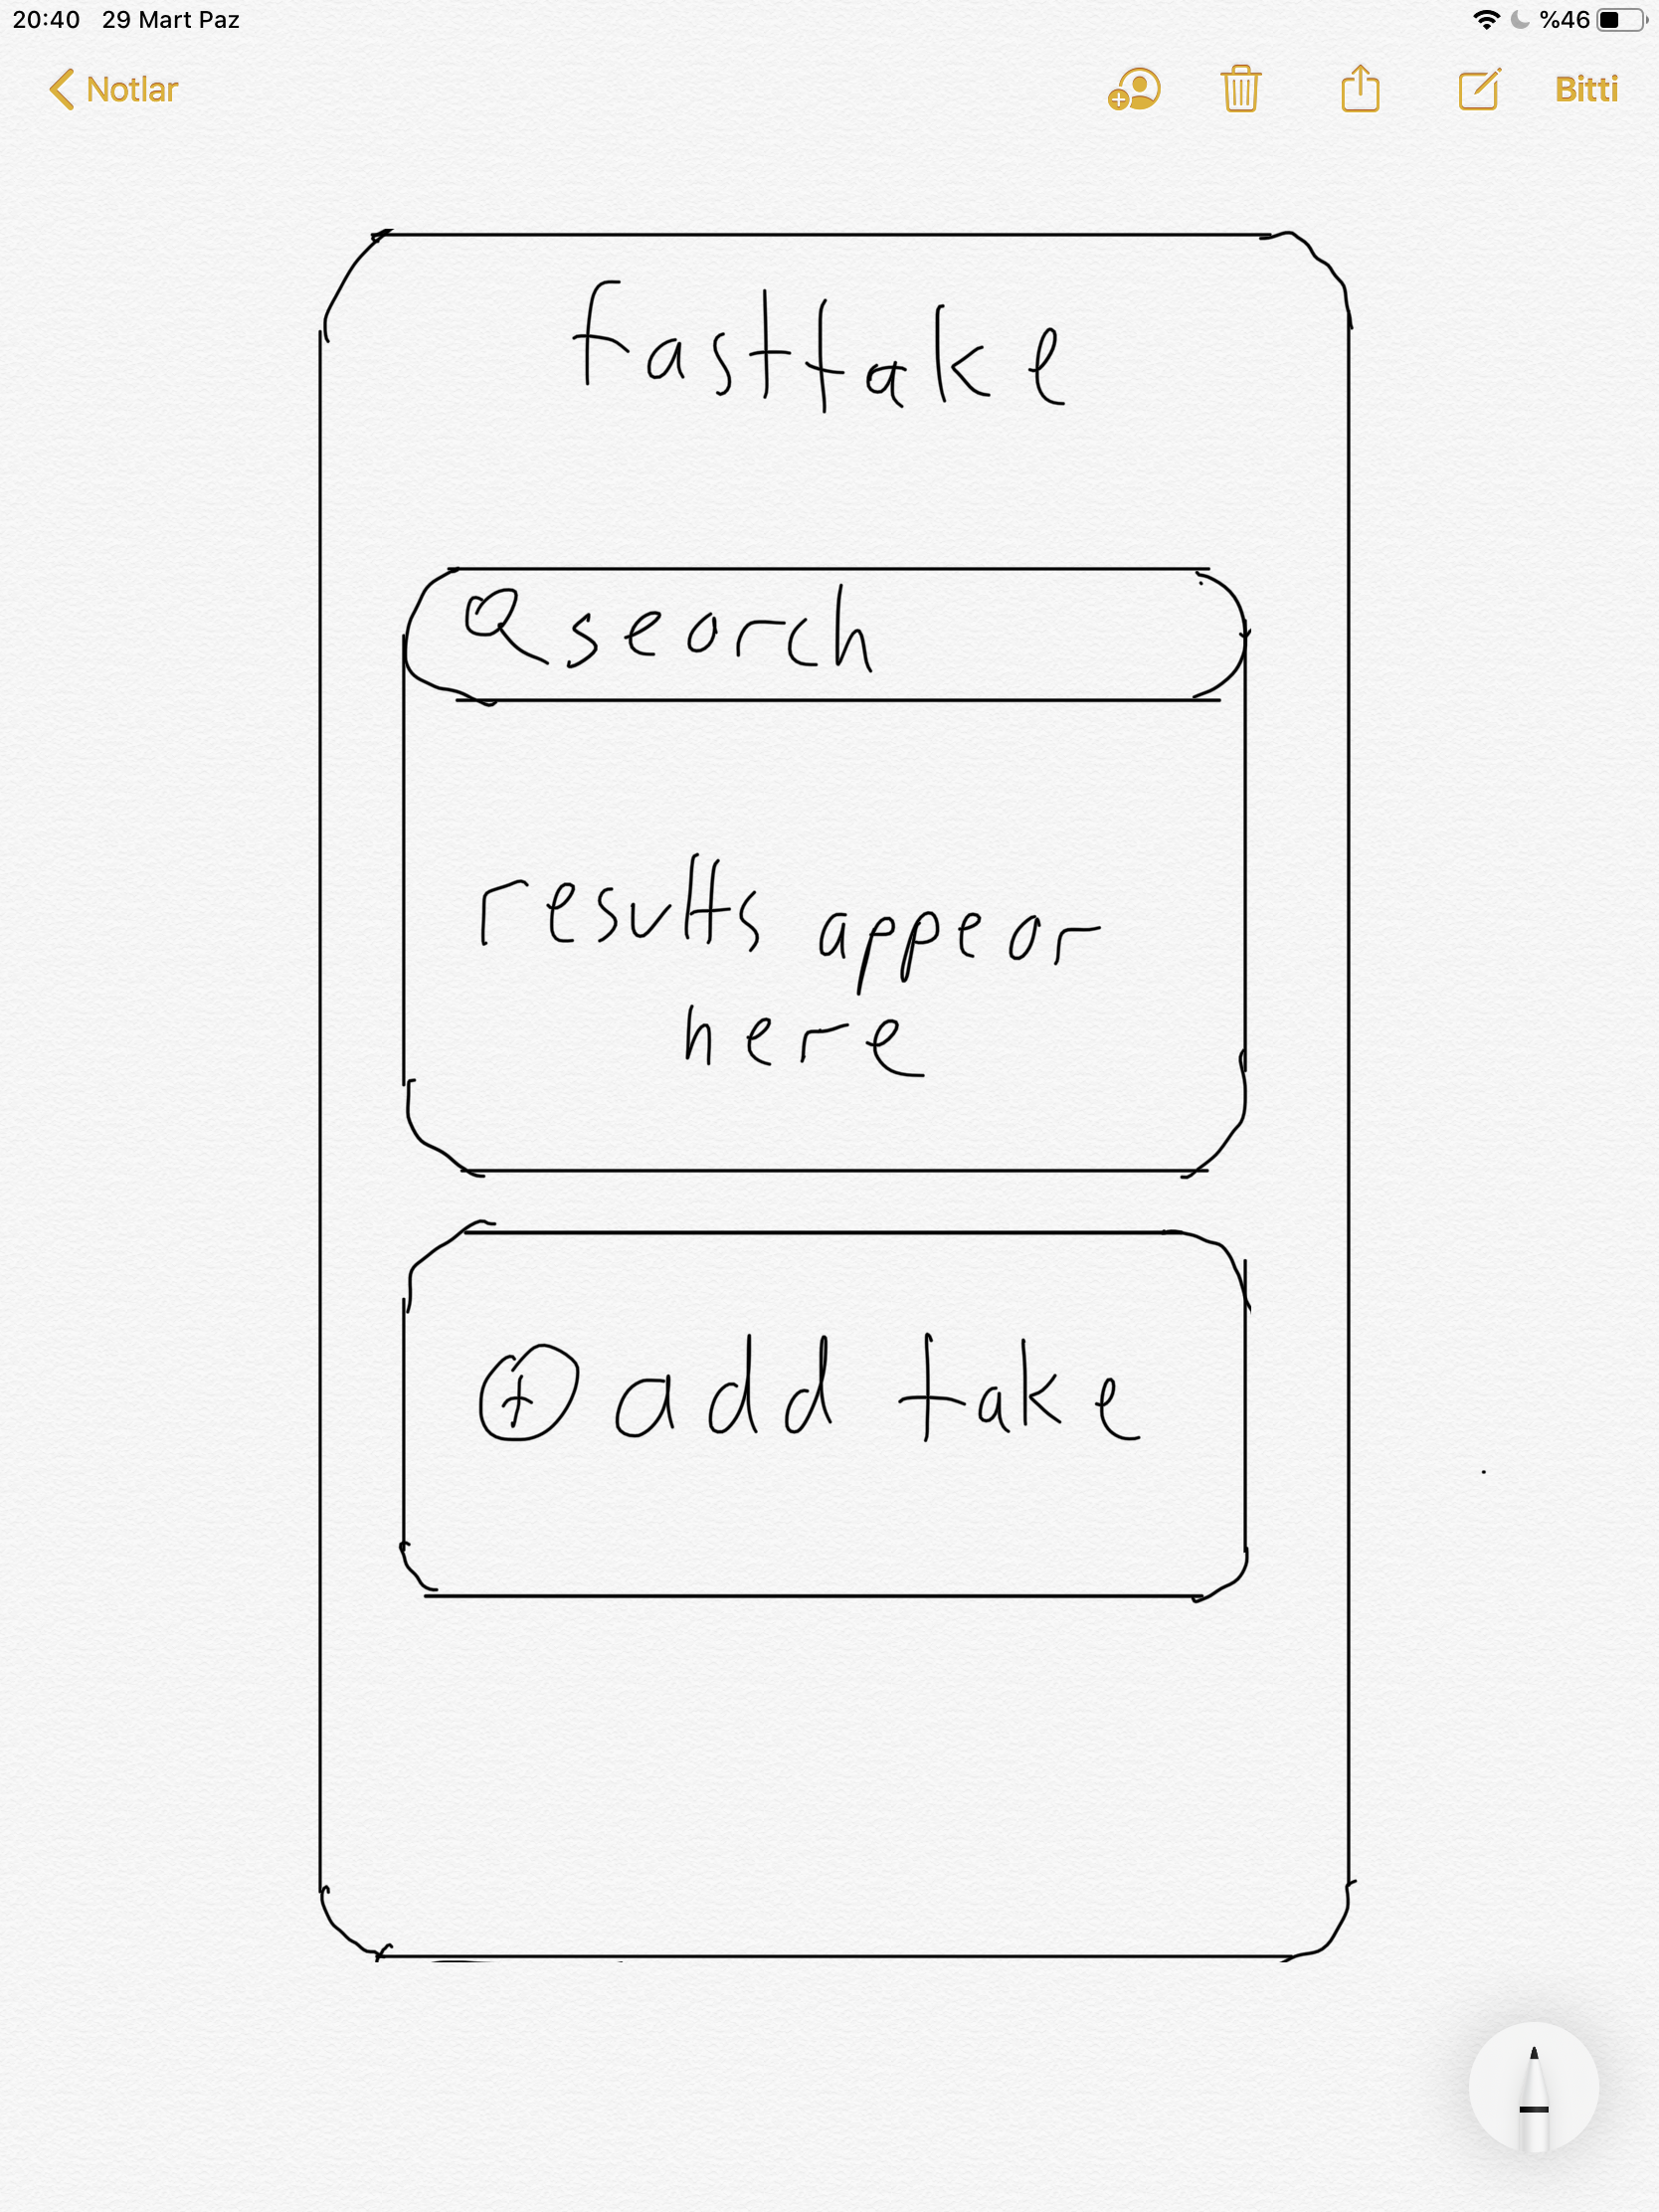 20:40 29 Mart Paz %46
Notlar Bitti
fasttake
search
results appear
here
+ add take